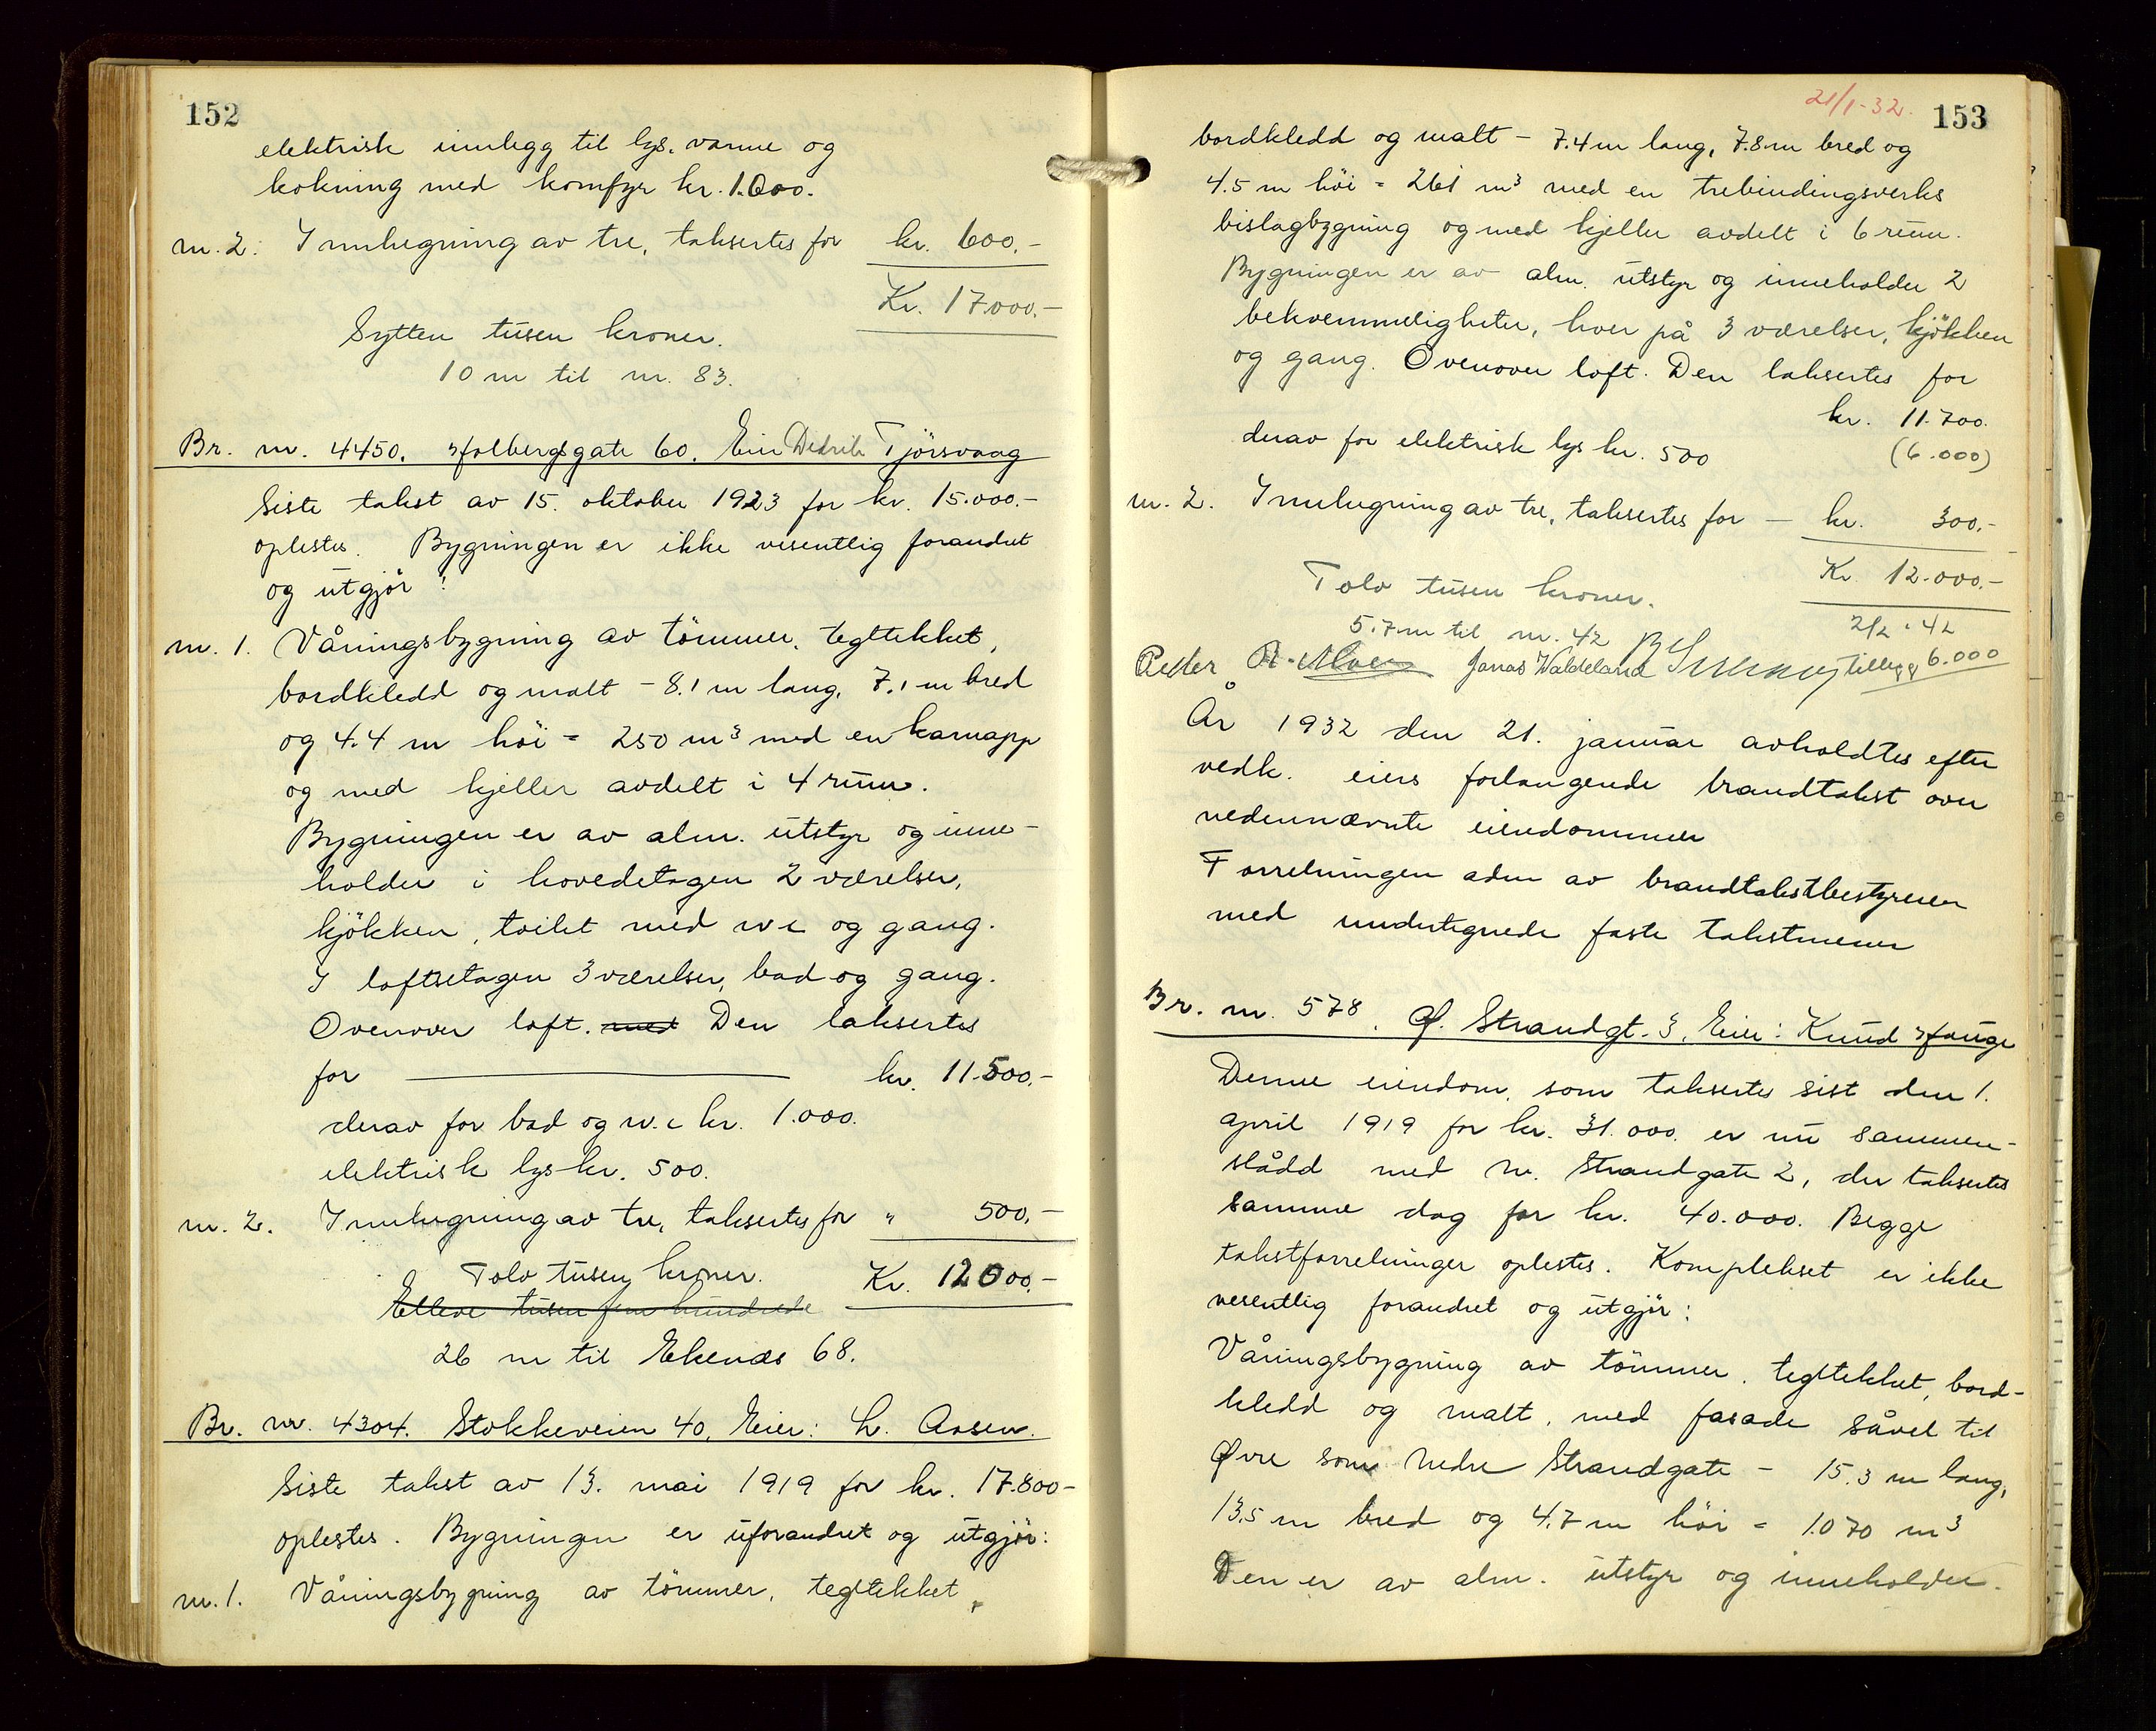 152
elektrisk innlegg til lys, varme og
kokning med komfyr kr. 1.000.
nr. 2. Innhegning av tre, taksertes for kr. 600.-
Kr. 17.000.-
Sytten tusen kroner.
10 m til nr. 83.
Br. nr. 4450. Holbergsgate 60. Eier Didrik Tjörsvaag
Siste takst av 15. oktober 1923 for kr. 15.000.-
oplestes. Bygningen er ikke vesentlig forandret
og utgjör:
nr. 1. Våningsbygning av tömmer, tegltekket,
bordkledd og malt - 8.1 m lang, 7.1 m bred
og 4.4 m höi = 250 m³ med en karnapp
og med kjeller avdelt i 4 rum.
Bygningen er av alm. utstyr og inne-
holder i hovedetagen 2 værelser,
kjökken, toilet med wc og gang.
I loftsetagen 3 værelser, bad og gang.
Ovenover loft. med Den taksertes
for kr. 11.500.-
derav for bad og w.c kr. 1.000.
elektrisk lys kr. 500.
nr. 2. Innhegning av tre, taksertes for " 500.-
Tolv tusen kroner. Kr. 12000.-
Elleve tusen fem hundrede
26 m til Ekenæs 68.
Br. nr. 4304. Stokkeveien 40. Eier: L. Aasen.
Siste takst av 13. mai 1919 for kr. 17.800-
oplestes. Bygningen er uforandret og utgjör:
nr. 1. Våningsbygning av tömmer, tegltekket,
21/1-32. 153
bordkledd og malt - 7.4 m lang, 7.8 m bred og
4.5 m höi = 261 m³ med en trebindingsverks
bislagbygning og med kjeller avdelt i 6 rum.
Bygningen er av alm. utstyr og inneholder 2
bekvemmeligheter, hver på 3 værelser, kjökken
og gang. Ovenover loft. Den taksertes for
kr. 11.700.
derav for elektrisk lys kr. 500 (6.000)
nr. 2. Innhegning av tre, taksertes for - kr. 300.-
Kr. 12.000.-
Tolv tusen kroner.
2/2 - 42
5.7 m til nr. 42
Peder R. Jonas Waldeland tillegg 6.000
År 1932 den 21. januar avholdtes efter
vedk. eiers forlangende brandtakst over
nedennævnte eiendommer
Forretningen adm av brandtakstbestyreren
med undertegnede faste takstmenn
Br. nr. 578. Ø. Strandgt. 3. Eier: Knud Hauge
Denne eiendom, som taksertes sist den 1.
april 1919 for kr. 31.000. er nu sammen-
slådd med N. Strandgate 2, der taksertes
samme dag for kr. 40.000. Begge
takstforretninger oplestes. Komplekset er ikke
vesentlig forandret og utgjör:
Våningsbygning av tömmer, tegltekket, bord-
kledd og malt, med fasade såvel til
Øvre som Nedre Strandgate - 15.3 m lang,
13.5 m bred og 4.7 m höi = 1.070 m³
Den er av alm. utstyr og inneholder.